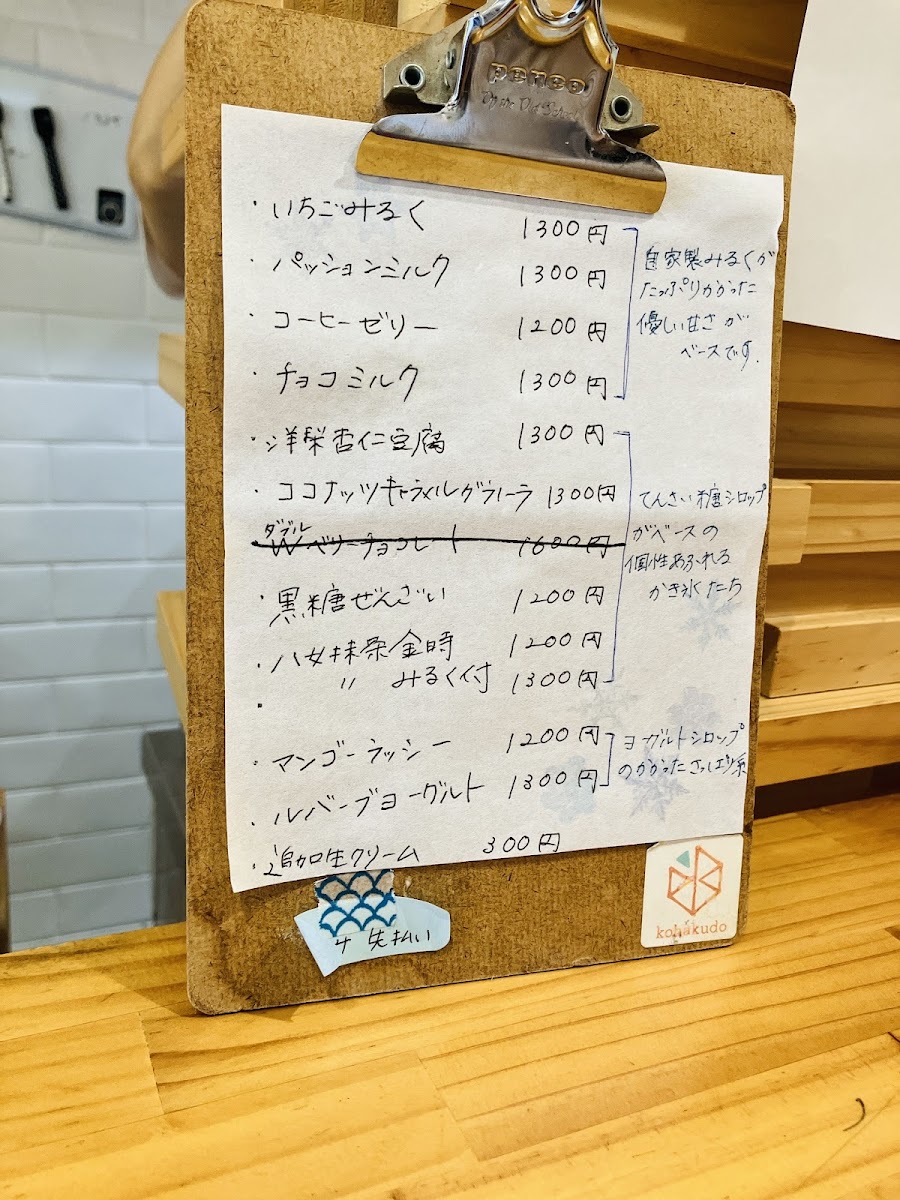 penco
・いちごみるく 1300円
・パッションミルク 1300円
・コーヒーゼリー 1200円
・チョコミルク 1300円
自家製みるくが
たっぷりかかった
優しい甘さが
ベースです.
・洋梨杏仁豆腐 1300円
・ココナッツキャラメルグラノーラ 1300円
ダブル
Wベリーチョコレート 1600円
・黒糖ぜんざい 1200円
・八女抹茶金時 1200円
〃 みるく付 1300円
・
てんさい糖シロップ
がベースの
個性あふれる
かき氷たち
・マンゴーラッシー 1200円
・ルバーブヨーグルト 1300円
ヨーグルトシロップ
のかかったさっぱり系
・追加生クリーム 300円
先払い
kohakudo